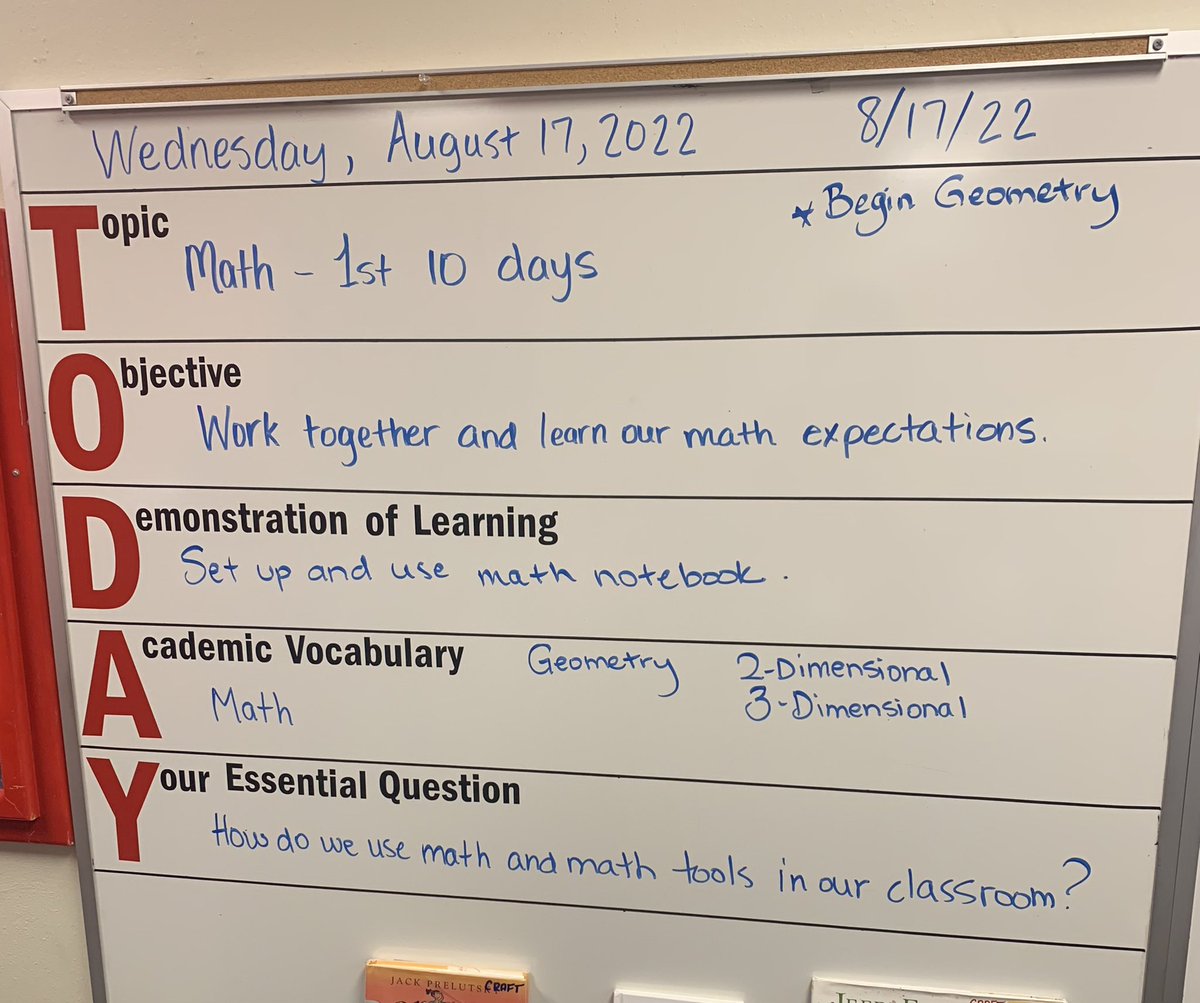 Wednesday, August 17, 2022 8/17/22
Topic *Begin Geometry
Math - 1st 10 days
Objective
Work together and learn our math expectations.
Demonstration of Learning
Set up and use math notebook.
Academic Vocabulary Geometry 2-Dimensional
Math 3-Dimensional
Your Essential Question
How do we use math and math tools in our classroom?
JACK PRELUTSKY CRAFT